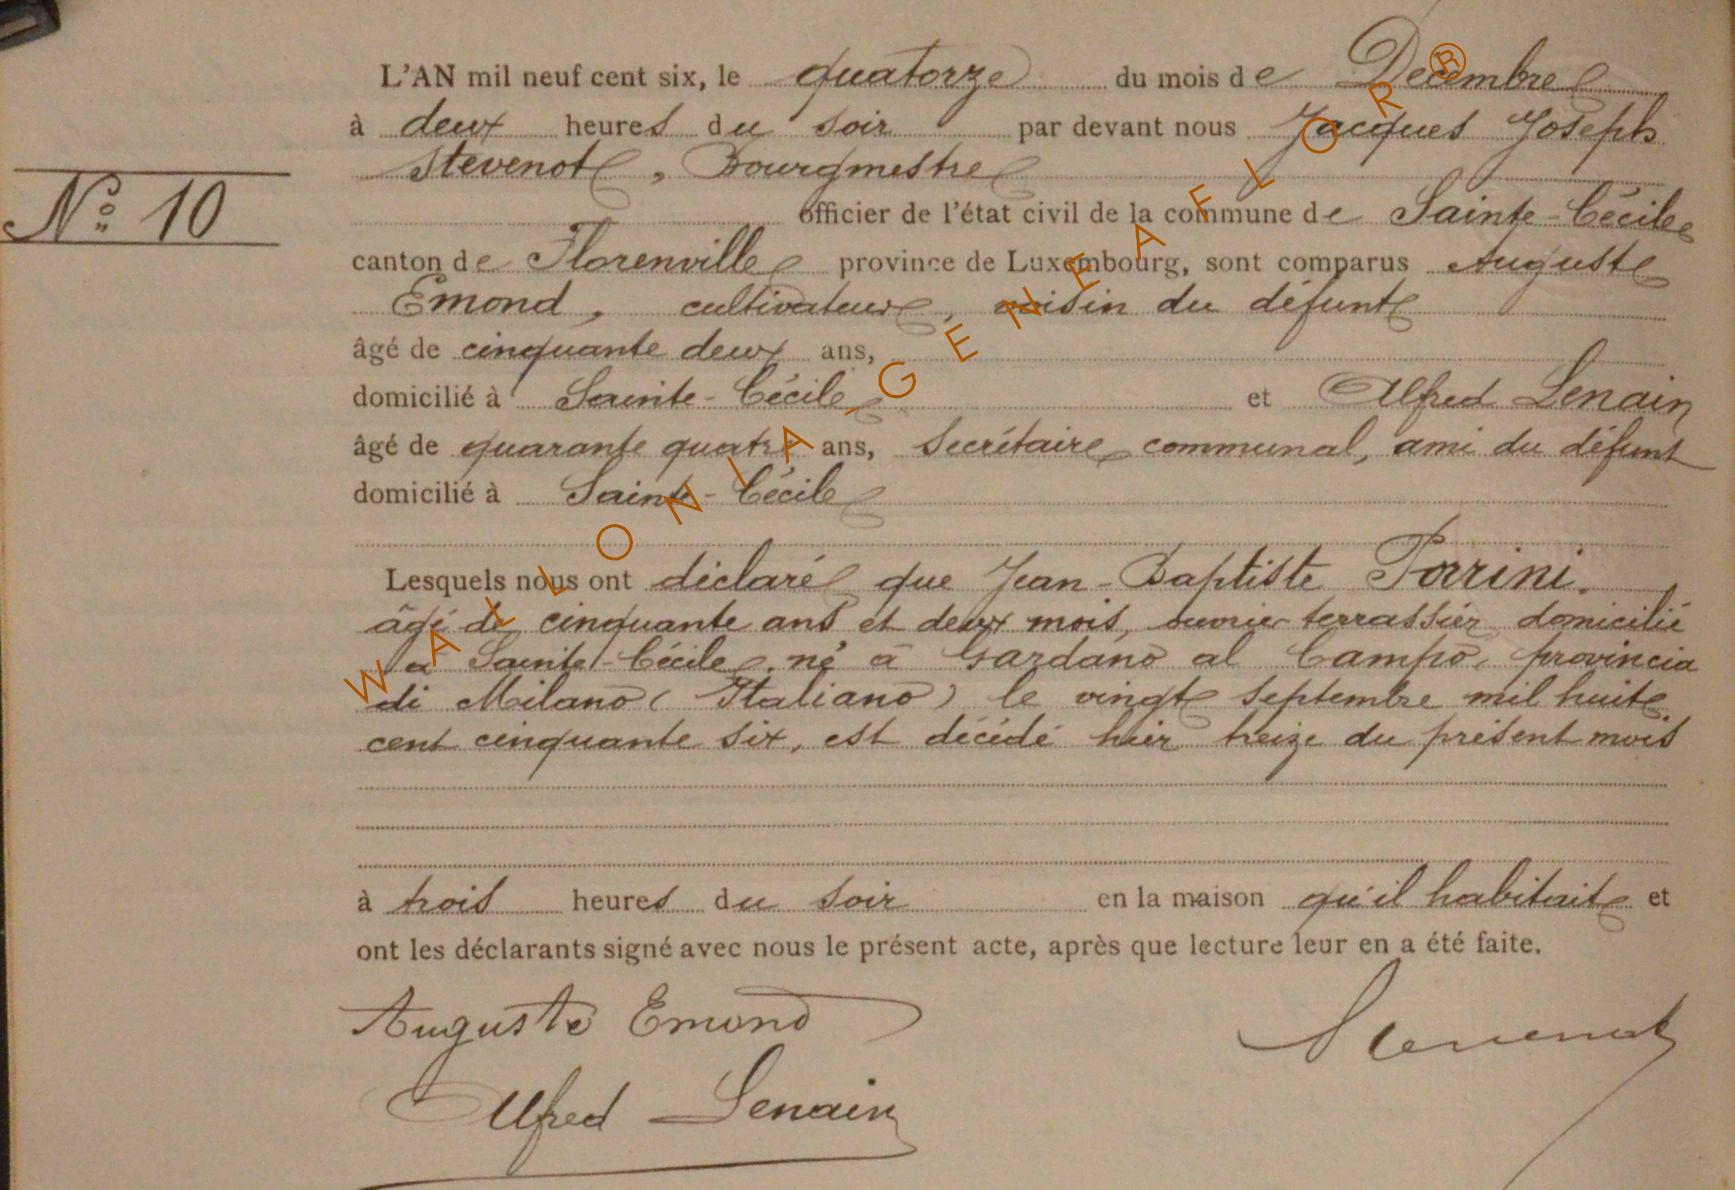 L'AN mil neuf cent six, le quatorze du mois de Décembre
à deux heures du soir par devant nous Jacques Joseph
Stevenot, Bourgmestre
N° 10
officier de l'état civil de la commune de Sainte-Cécile
canton de Florenville province de Luxembourg, sont comparus Auguste
Emond, cultivateur, voisin du défunt
âgé de cinquante deux ans,
domicilié à Sainte-Cécile et Alfred Lenain
âgé de quarante quatre ans, secrétaire communal, ami du défunt
domicilié à Sainte-Cécile
Lesquels nous ont déclaré que Jean-Baptiste Porrini.
âgé de cinquante ans et deux mois, ouvrier terrassier domicilié
à Sainte-Cécile, né à Gardano al Campo, provincia
di Milano (Italiano) le vingt septembre mil huit
cent cinquante six, est décédé hier treize du présent mois
à trois heures du soir en la maison qu'il habitait et
ont les déclarants signé avec nous le présent acte, après que lecture leur en a été faite.
Auguste Emond
Stevenot
Alfred Lenain
WALLONIA GENEAFLOR®